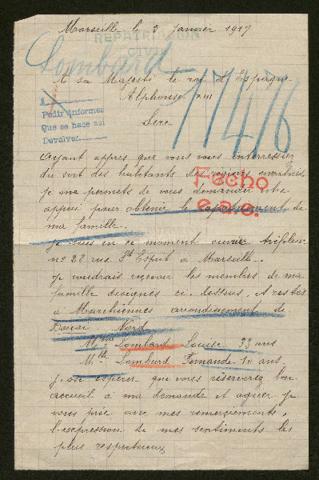 Marseille le 3 janvier 1917
REPATRIACION
CIVIL
Lombard
A sa Majesté le roi d'Espagne
Alphonse XIII
77476
Pedir informes
Que se hace así
Devolver
Ayant appris que vous vous
du sort des habitants des
je me permets de vous demander votre
appui pour obtenir le rapatriement de
ma famille.
Fecho
Je suis en ce moment
no 22 rue St Esprit à Marseille.
Je voudrais recevoir les membres de ma
famille désignés ci-dessous,
à Marchiennes arrondissement de
Douai Nord
Mme Lombard Louise 33 ans
Mlle Lombard Fernande 10 ans.
J'ose espérer que vous réserverez bon
accueil à ma demande et agréer je
vous prie avec mes remerciements,
l'expression de mes sentiments les
plus respectueux